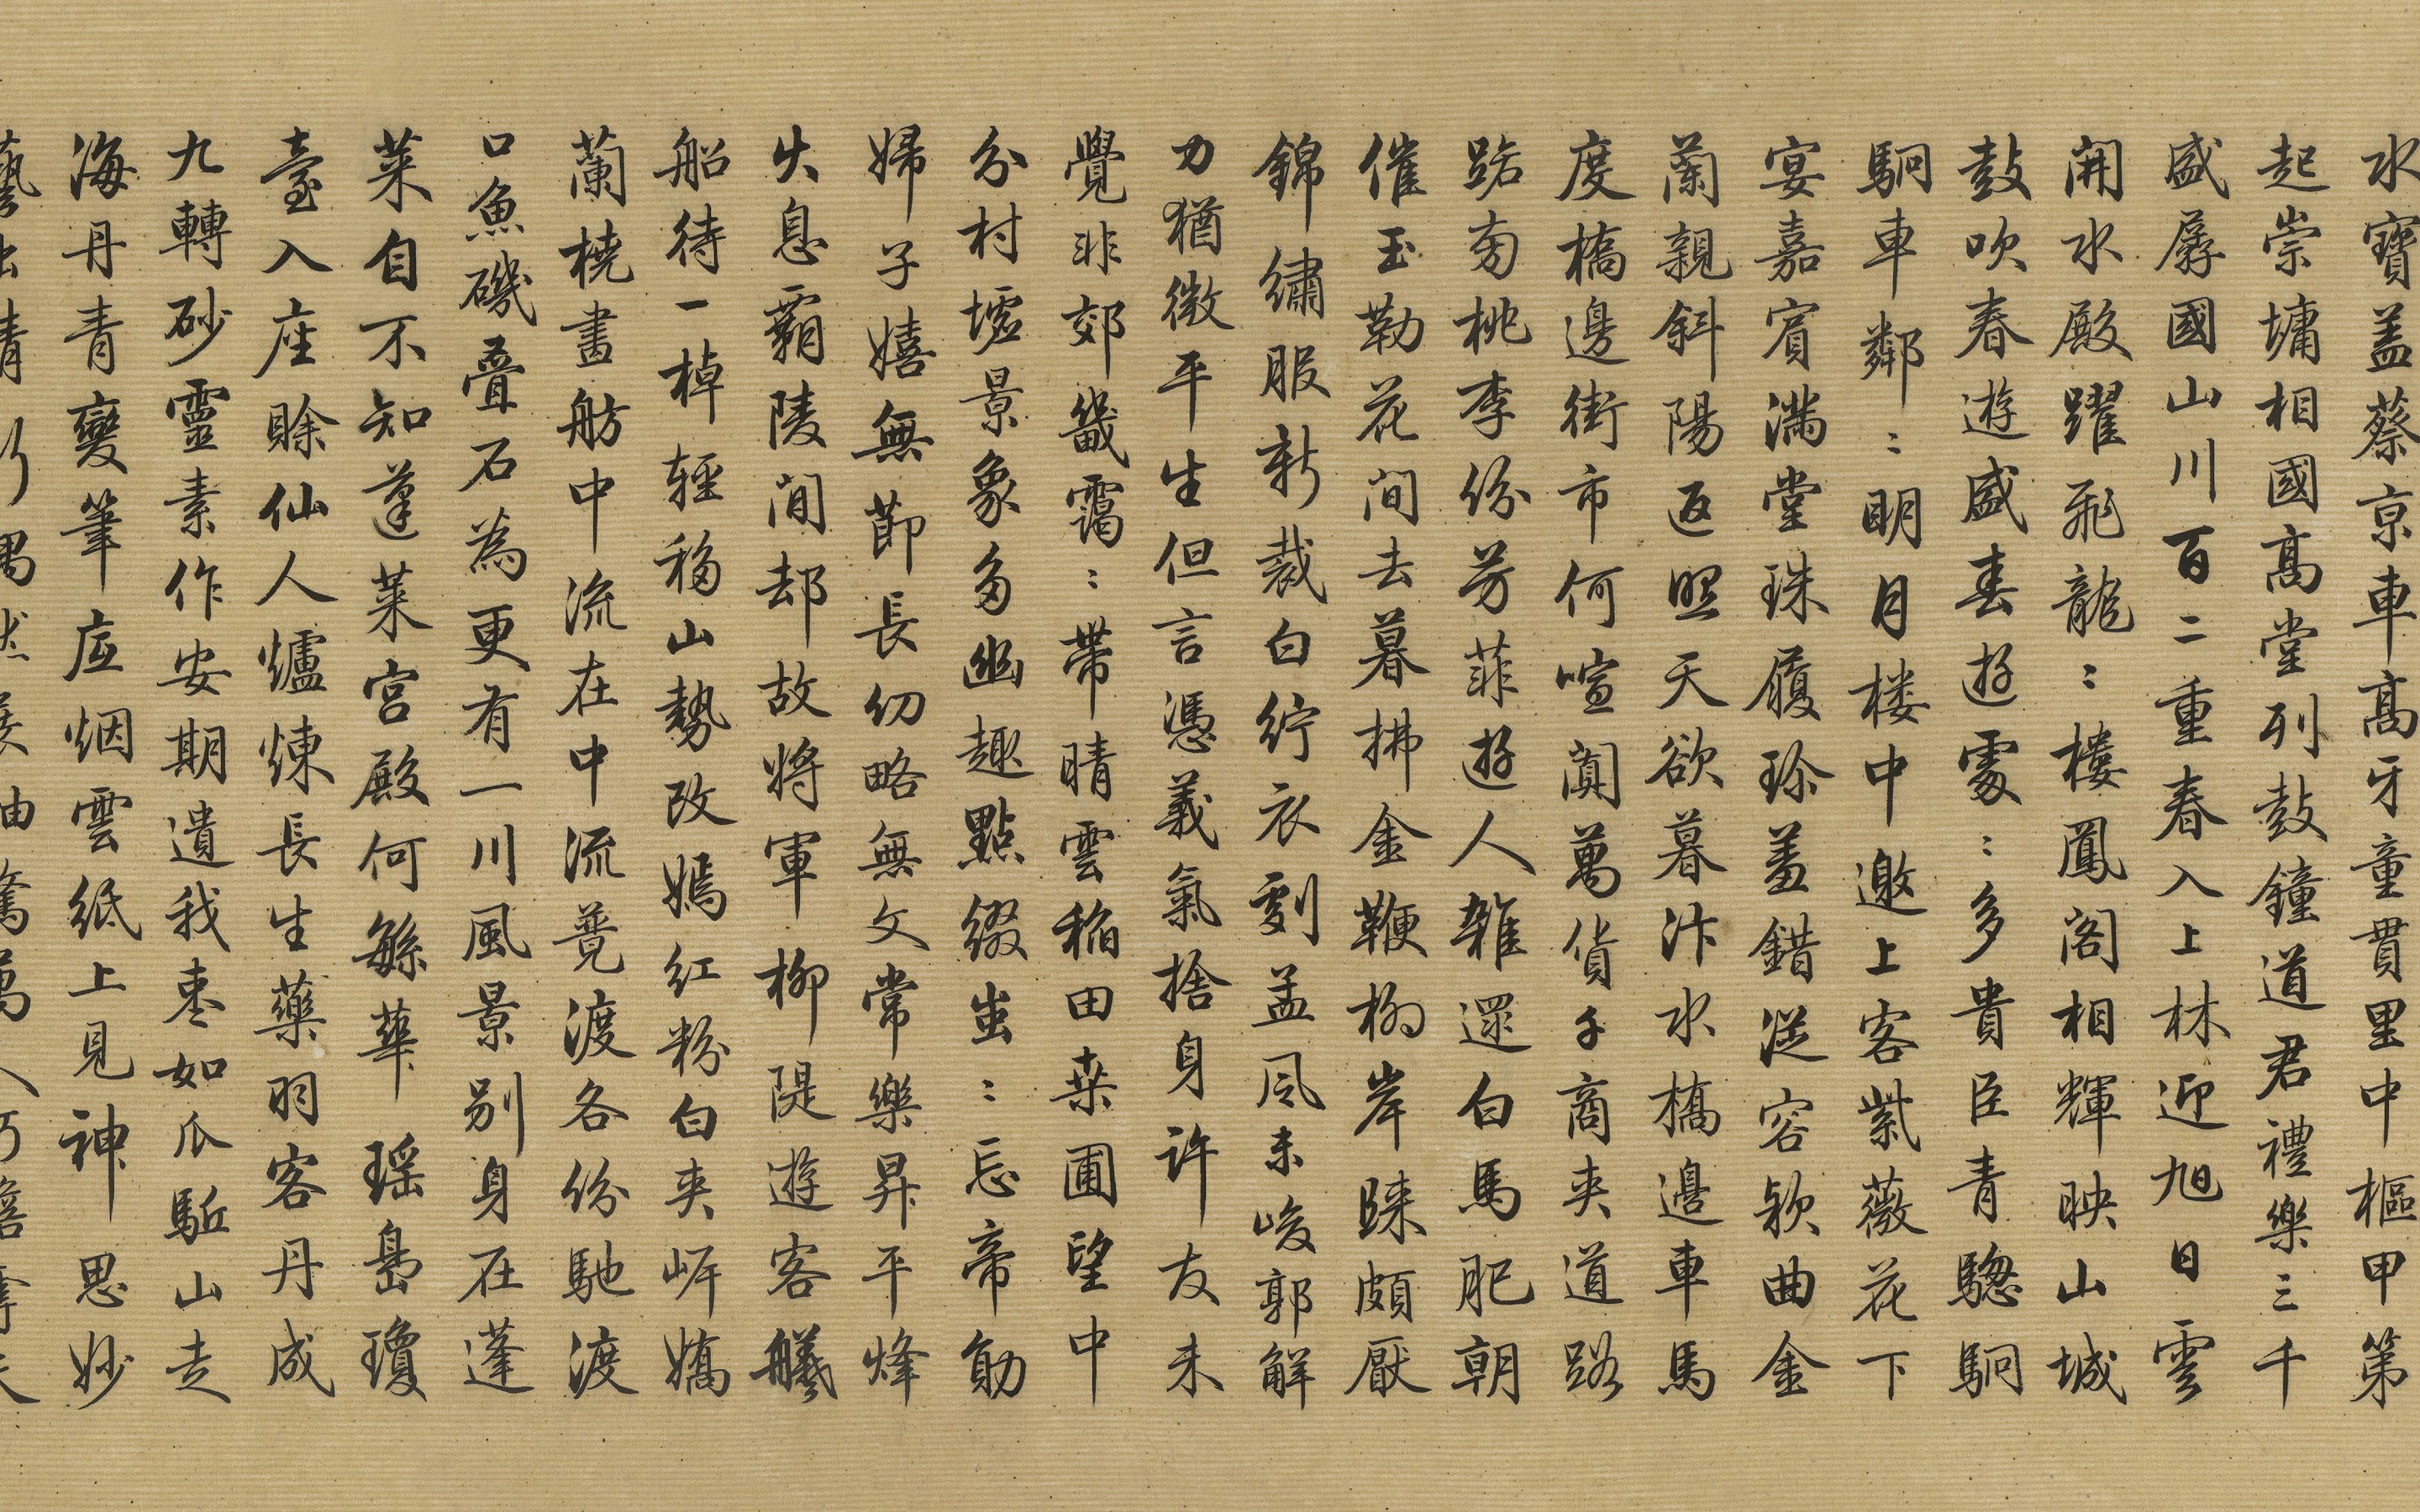 水寶盖蔡京車高牙童貫里中樞甲第
起崇墉相國高堂列鼓鐘道君禮樂三千
盛孱國山川百二重春入上林迎旭日雲
開水殿躍飛龍〻樓鳳閣相輝映山城
鼓吹春遊盛春遊處〻多貴臣青驄駉
駉車鄰〻明月楼中邀上客紫薇花下
宴嘉賓滿堂珠履珍羞錯從容欵曲金
蘭親斜陽返照天欲暮汴水橋邊車馬
度橋邊街市何喧闐萬貨千商夾道路
路旁桃李份芳菲遊人雜還白馬肥朝
催玉勒花间去暮拂金鞭柳岸歸頗厭
錦繡服新裁白紵衣劇孟風未峻郭解
力猶微平生但言憑義氣捨身許友未
覺非郊畿靄〻帶晴雲稲田桒圃望中
分村墟景象多幽趣點缀蚩〻忘帝勛
婦子嬉無節長幼略無文常樂昇平烽
火息霸陵间却故將軍柳隄遊客艤
船待一棹輕移山勢改嫣紅粉白夹岸嬌
蘭橈畫舫中流在中流競渡各份馳渡
口魚磯疊石為更有一川風景别身在蓬
莱自不知蓬莱宮殿何緐華瑶島瓊
臺入座賒仙人爐煉長生藥羽客丹成
九轉砂靈素作安期遺我枣如瓜駈山走
海丹青變筆底烟雲紙上見神思妙